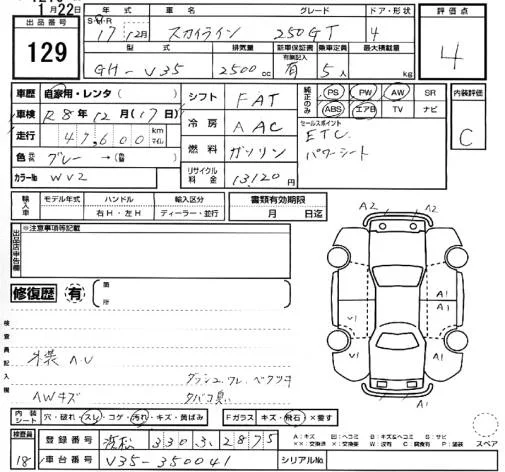 1月22日
出品番号
129
年式 車名 グレード ドア・形状
S・H・R 17年 12月 スカイライン 250GT 4
型式 排気量 新車保証書 乗車定員 最大積載量
有無記入
GH-V35 2500cc 有 5人 kg
評価点
4
車歴 自家用・レンタ( )
車検 R8年12月(17日)
走行 47,600 km マイル
色 元色 グレー→(替色 )
カラーNo WV2
シフト FAT
冷房 AAC
燃料 ガソリン
リサイクル料金 13120円
純正のみ PS PW AW SR
ABS エアB TV ナビ
セールスポイント
ETC
パワーシート
内装評価
C
輸入車 モデル年式 ハンドル 輸入区分
右H・左H ディーラー・並行
書類有効期限
月 日迄
出品店申告欄
※注意事項等記載
修復歴 有 箇所
検査員記入欄
AWキズ
A2 A2
A1
V1 A1
A1
内装シート 穴・破れ・スレ・コゲ・汚れ・キズ・黄ばみ
Fガラス キズ・飛石・×要す
検査員
18
登録番号 浜松 330 す 2875
車台番号 V35-350041
シリアルNo
A:キズ E:エクボ B:キズ&ヘコミ S:サビ
スペア